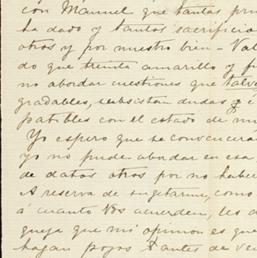 ción Manuel que tantas pru
ha dado y tantos sacrificio
otros y por nuestro bien - Val
do que frente amarillo y f
no abordar cuestiones que talv
gradables, subsistan dudas é i
patibles con el estado de mi
Yo espero que se convencerá
yo no pude abordar en esa
de datos otros por no haber
A reserva de sugetarme, como
á cuanto Vds acuerden, les a
que mi opinion es que
hagan pozos antes de ve